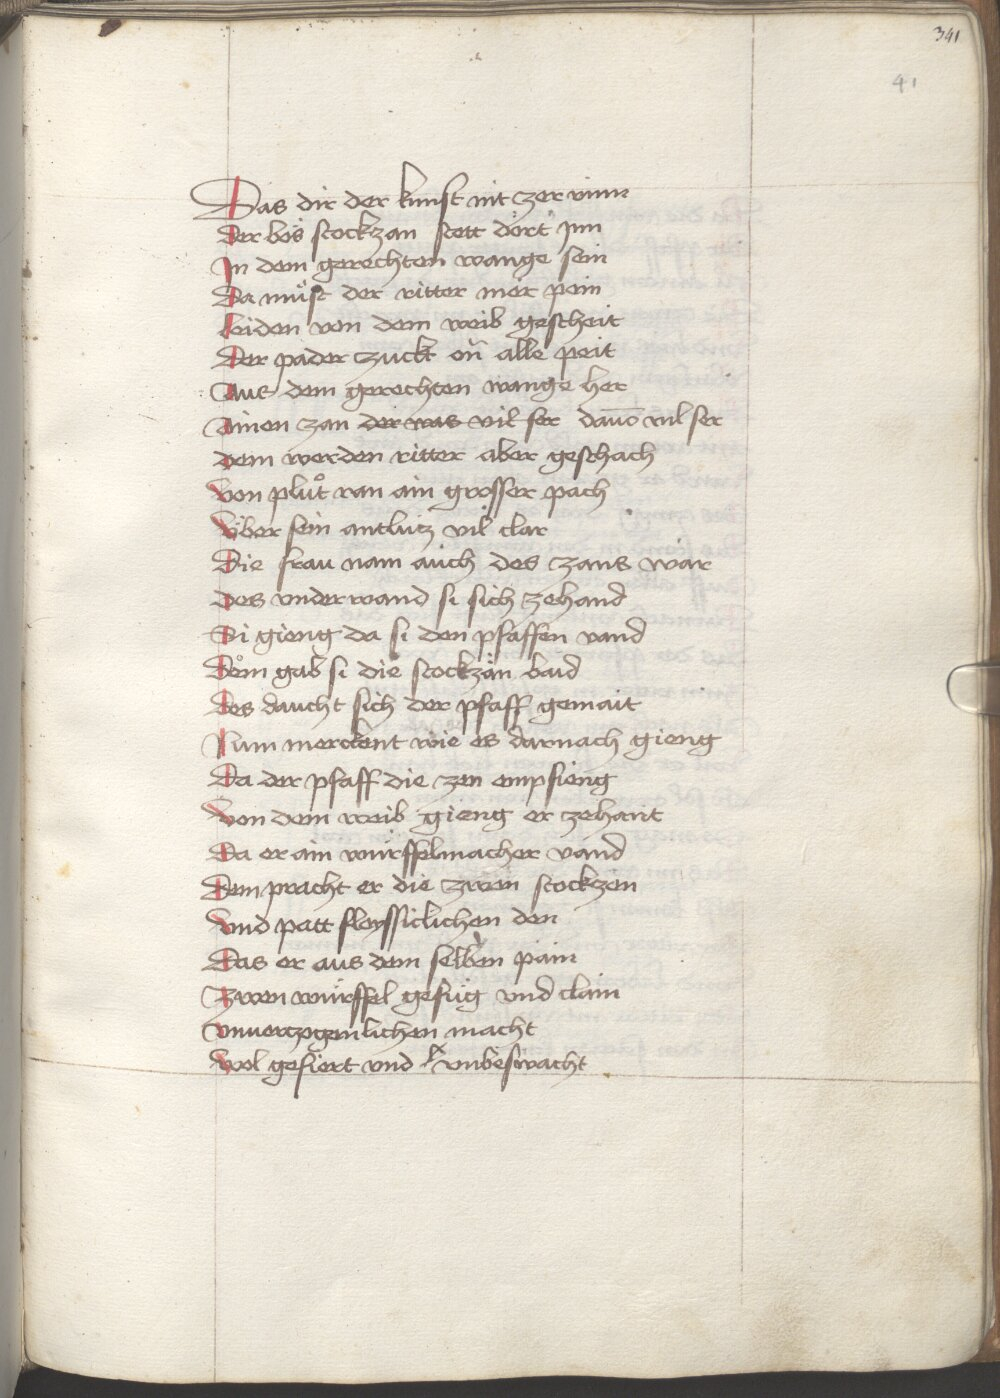 341
41
Das dir der kunst nit zer rinn
Der bös stockzan stett dört jnn
Jn dem gerechten wange sein
Da müst der ritter mer pein
Leiden von dem weib gescheit
Der pader zuckt on̄ alle peit
Aus dem gerechten wange her
Ainen zan der was vil ser dauō vil ser
Dem werden ritter aber geschach
Von plůt ran ain grosser pach
Vber sein antlutz vil clar
Die frau nam auch des zans war
Des vnderwand si sich zehand
Si gieng da si den pfaffen vand
Dem gab si die stockzän baid
Des daucht sich der pfaff gemait
Nun merckent wie es darnach gieng
Da der pfaff die zen empfieng
Von dem weib gieng er zehant
Da er ain würffelmacher vand
Dem pracht er die zwen stockzen
Vnd patt fleyssiclichen den
Das er aus dem selben pain
Zwen würffel gefüg vnd clain
Vnuerzogenlichen macht
Wol gefiert vnd vnbeswacht